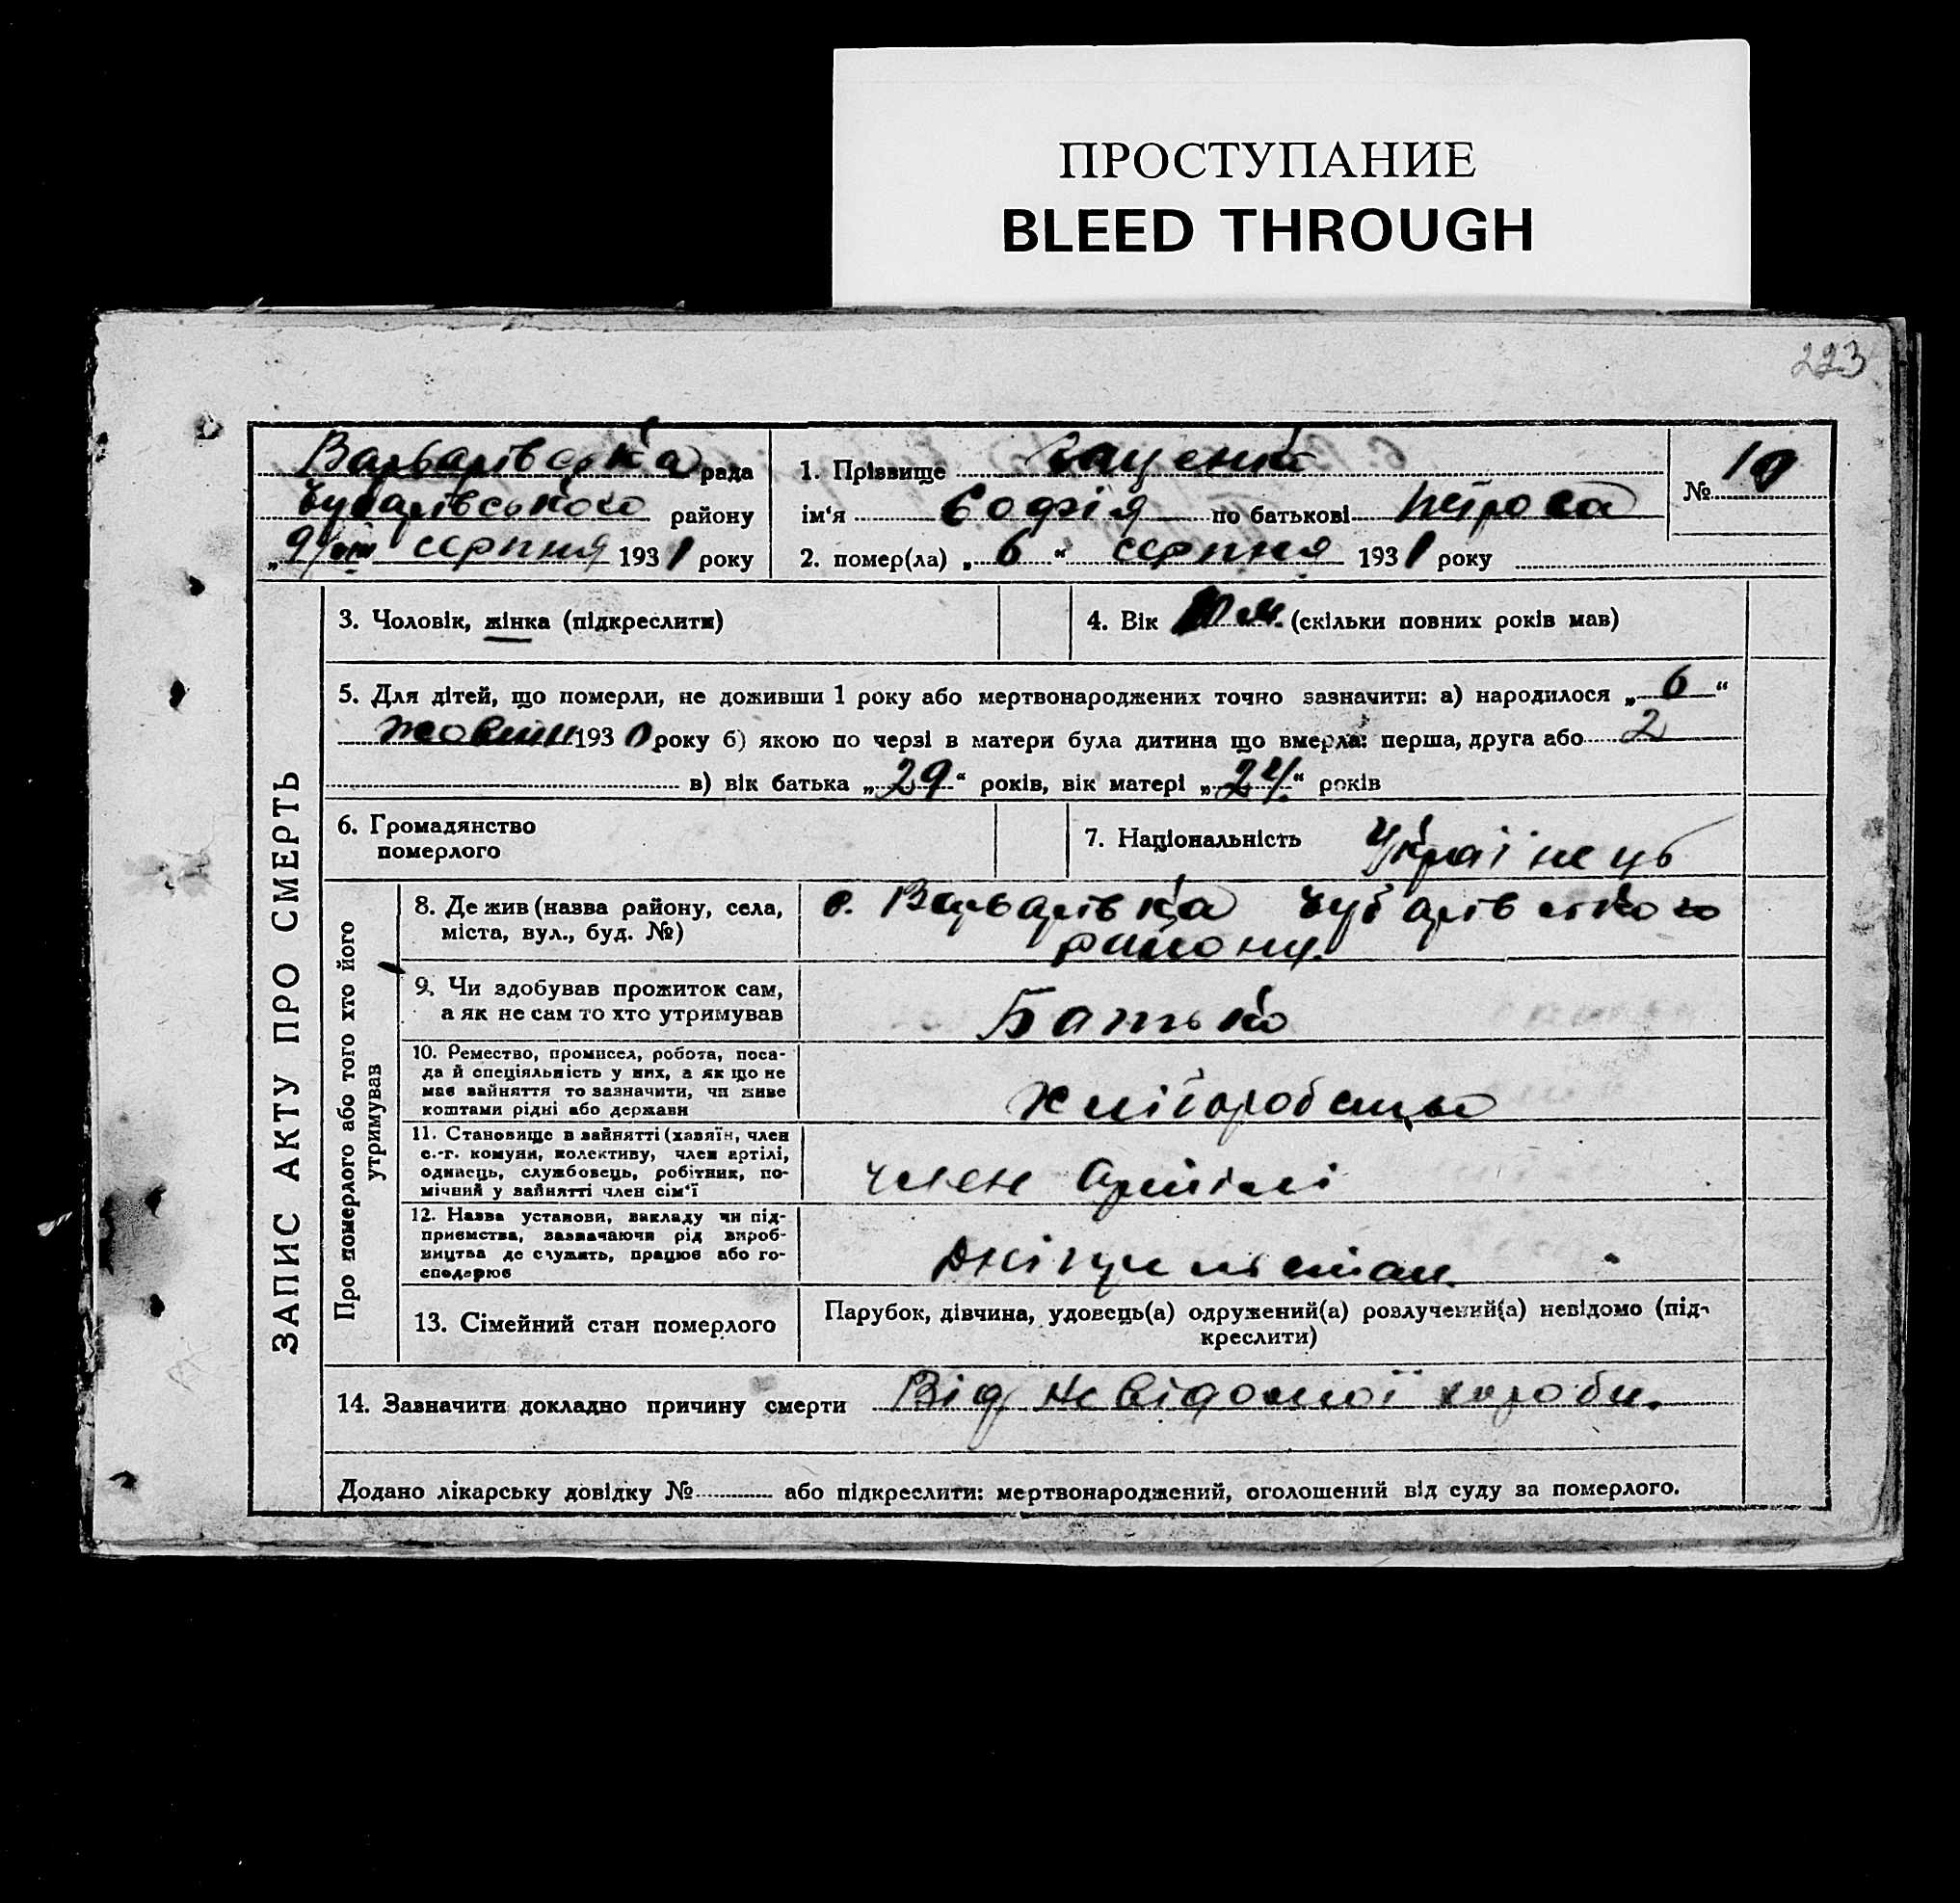 ПРОСТУПАНИЕ
BLEED THROUGH
223
Варварівська рада
Чубарівського району
„9/VIII серпня 1931 року
1. Прізвище
ім‘я Софія по батькові Петрова
2. помер(ла) „6“ серпня 1931 року
№ 10
ЗАПИС АКТУ ПРО СМЕРТЬ
3. Чоловік, жінка (підкреслити)
4. Вік 10 м. (скільки повних років мав)
5. Для дітей, що померли, не доживши 1 року або мертвонароджених точно зазначити: а) народилося „6“
жовтн 1930 року б) якою по черзі в матери була дитина що вмерла: перша, друга або 2
в) вік батька „29“ років, вік матері „24“ років
6. Громадянство
померлого
7. Національність Українець
Про померлого або того хто його
утримував
8. Де жив (назва району, села,
міста, вул., буд. №)
с. Варварівка Чубарівского
району.
9. Чи здобував прожиток сам,
а як не сам то хто утримував
Батько
10. Ремество, промисел, робота, поса-
да й спеціяльність у них, а як що не
має зайняття то зазначити, чи живе
коштами рідні або держави
Хліборобство
11. Становище в зайнятті (хазяїн, член
с.-г. комуни, колективу, член артілі,
одинець, службовець, робітник, по-
мічний у зайнятті член сім‘ї
член артілі
12. Назва установи, закладу чи під-
приємства, зазначаючи рід вироб-
ництва де служить, працює або го-
сподарює
13. Сімейний стан померлого
Парубок, дівчина, удовець(а) одружений(а) розлучений(а) невідомо (під-
креслити)
14. Зазначити докладно причину смерти Від невідомої хороби.
Додано лікарську довідку № або підкреслити: мертвонароджений, оголошений від суду за померлого.